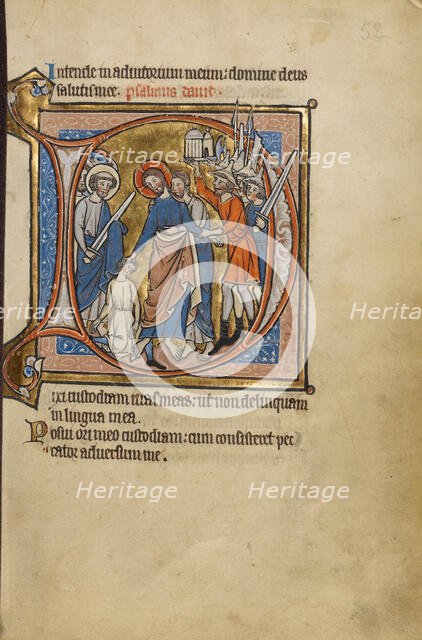 52
Intende in adiutorium meum: domine deus
salutis mee. psalmus david.
ixi custodiam vias meas: ut non delinquam
in lingua mea.
Posui ori meo custodiam: cum consisteret pec
cator adversum me.
Heritage Heritage Heritage
Heritage Heritage Heritage